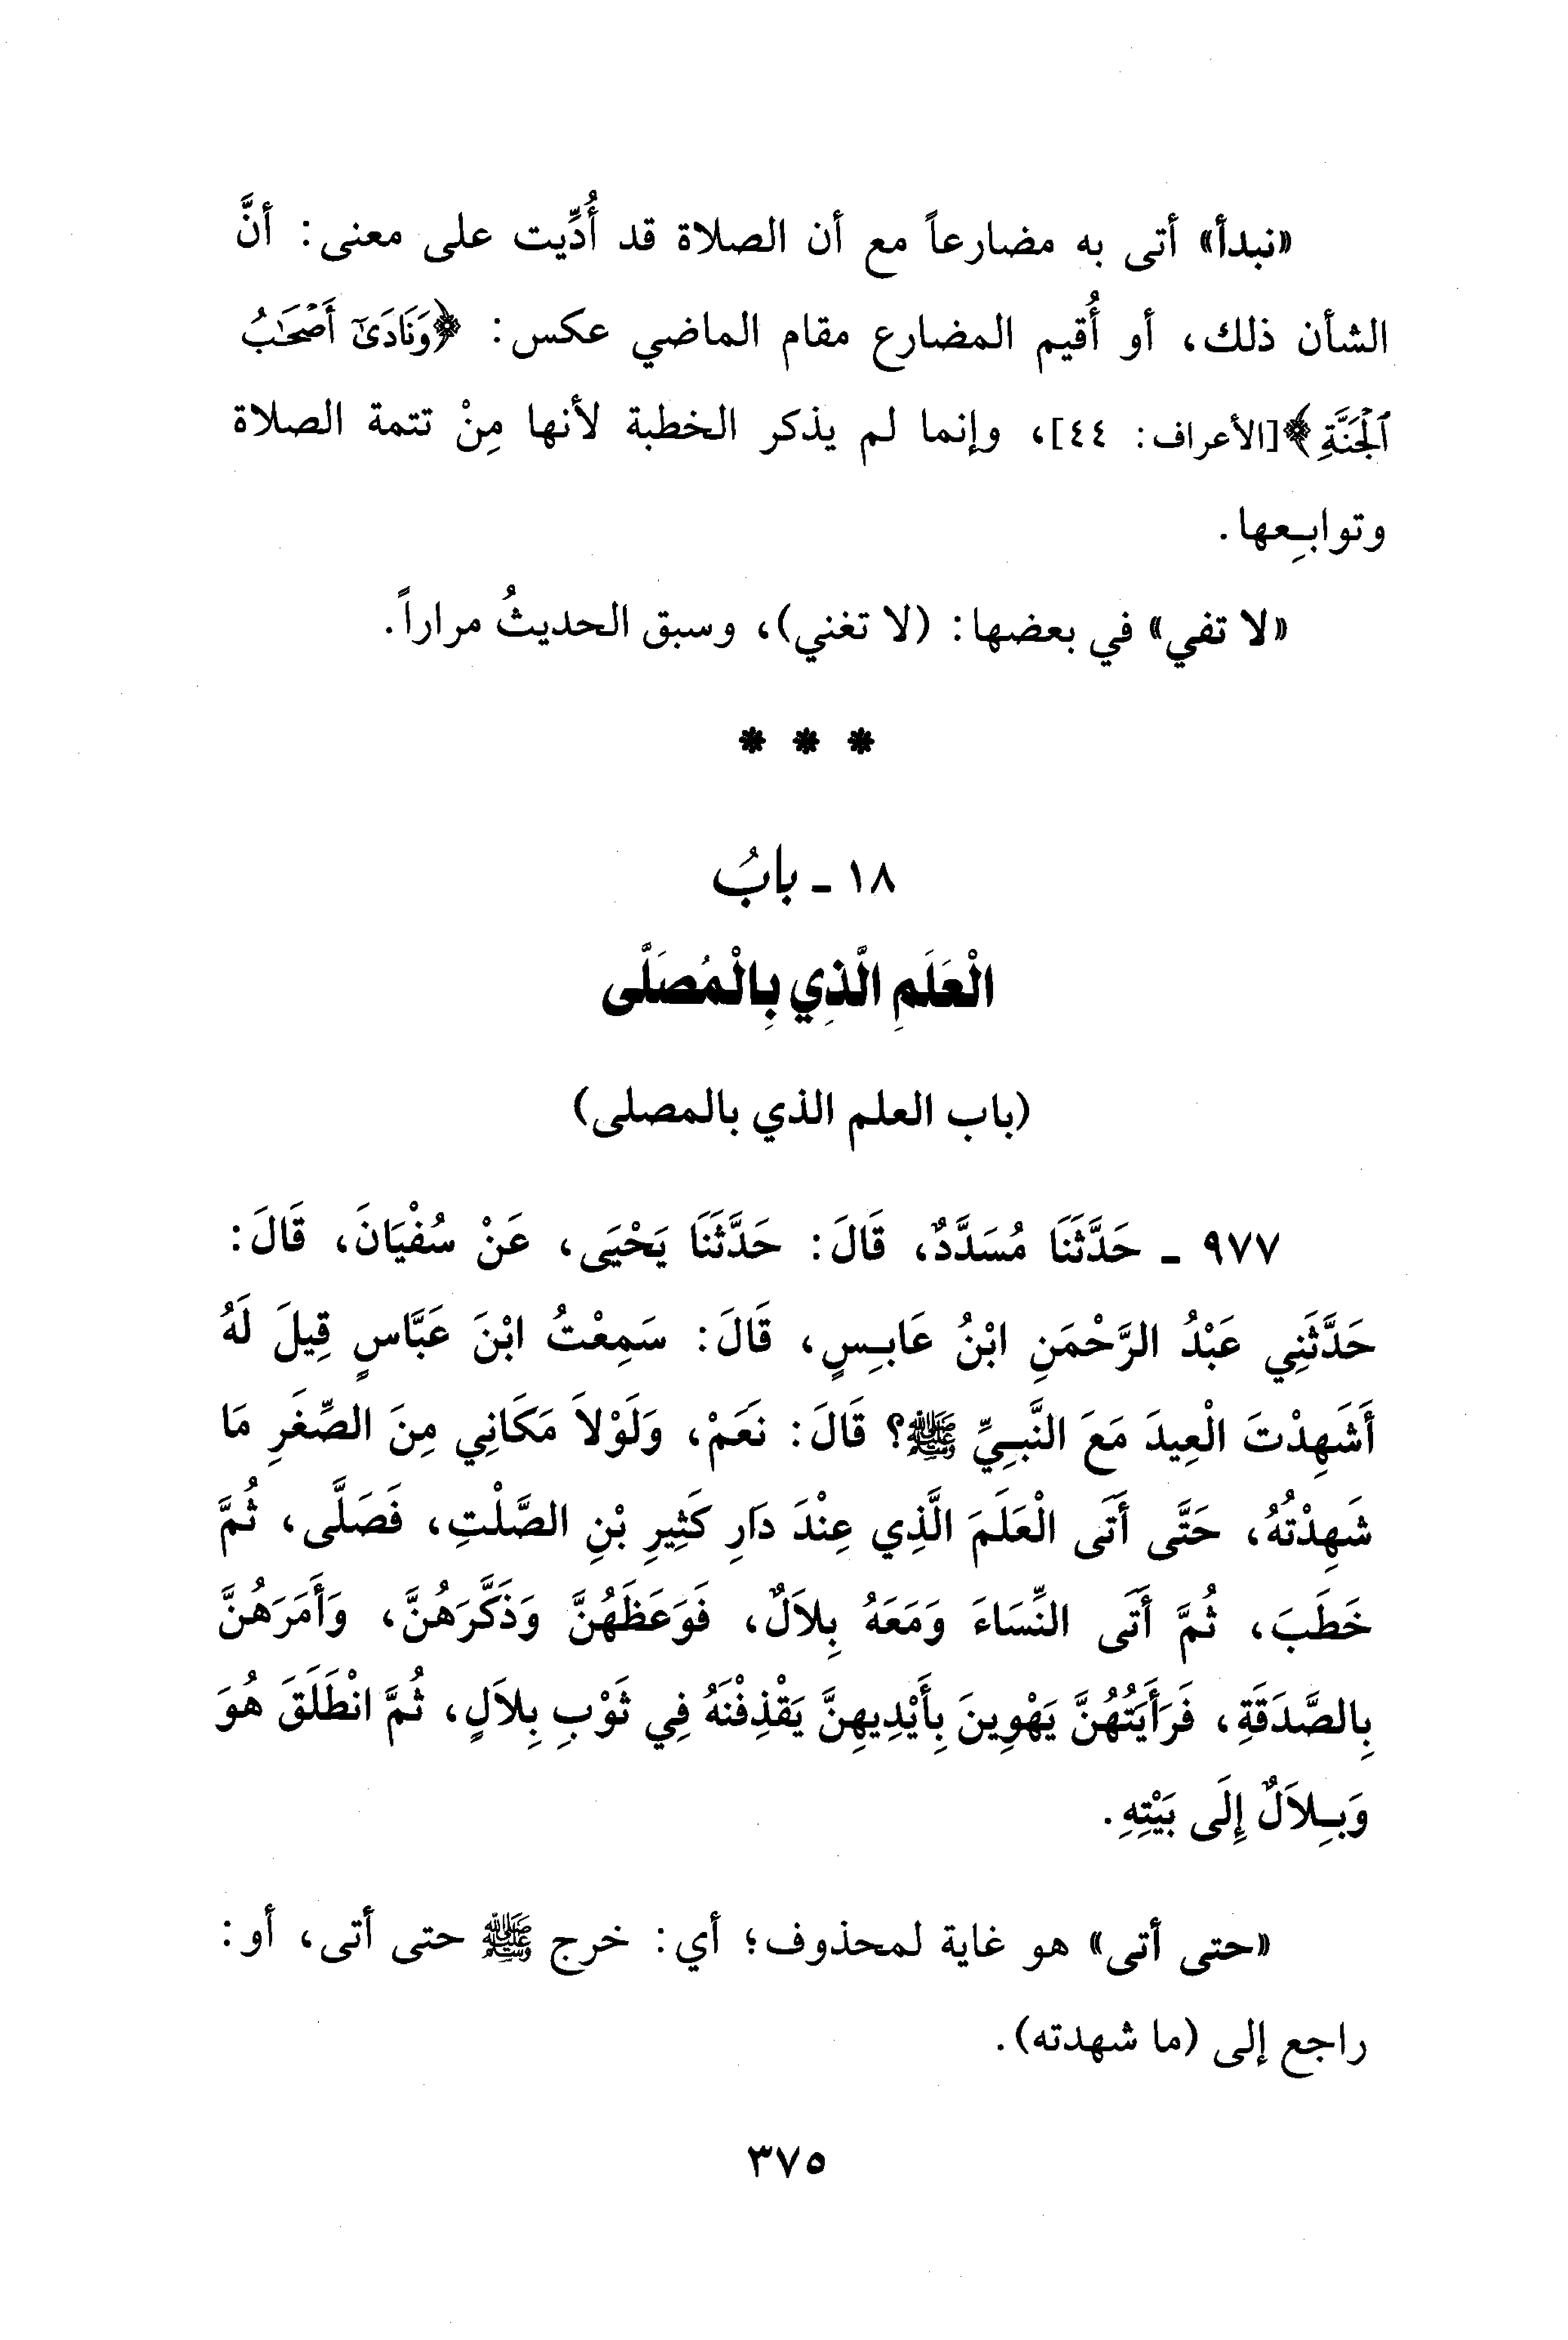 «نبدأ» أتى به مضارعاً مع أن الصلاة قد أُدِّيت على معنى: أنَّ
الشأن ذلك، أو أُقيم المضارع مقام الماضي عكس: ﴿وَنَادَىٰٓ أَصْحَٰبُ
ٱلْجَنَّةِ﴾[الأعراف: ٤٤]، وإنما لم يذكر الخطبة لأنها مِنْ تتمة الصلاة
وتوابِعها.
«لا تفي» في بعضها: (لا تغني)، وسبق الحديثُ مراراً.
* * *
١٨ - بابُ
الْعَلَمِ الَّذِي بِالْمُصَلَّى
(باب العلم الذي بالمصلى)
٩٧٧ - حَدَّثَنَا مُسَدَّدٌ، قَالَ: حَدَّثَنَا يَحْيَى، عَنْ سُفْيَانَ، قَالَ:
حَدَّثَنِي عَبْدُ الرَّحْمَنِ ابْنُ عَابِسٍ، قَالَ: سَمِعْتُ ابْنَ عَبَّاسٍ قِيلَ لَهُ
أَشَهِدْتَ الْعِيدَ مَعَ النَّبِيِّ ﷺ؟ قَالَ: نَعَمْ، وَلَوْلاَ مَكَانِي مِنَ الصِّغَرِ مَا
شَهِدْتُهُ، حَتَّى أَتَى الْعَلَمَ الَّذِي عِنْدَ دَارِ كَثِيرِ بْنِ الصَّلْتِ، فَصَلَّى، ثُمَّ
خَطَبَ، ثُمَّ أَتَى النِّسَاءَ وَمَعَهُ بِلاَلٌ، فَوَعَظَهُنَّ وَذَكَّرَهُنَّ، وَأَمَرَهُنَّ
بِالصَّدَقَةِ، فَرَأَيْتُهُنَّ يَهْوِينَ بِأَيْدِيهِنَّ يَقْذِفْنَهُ فِي ثَوْبِ بِلاَلٍ، ثُمَّ انْطَلَقَ هُوَ
وَبِلاَلٌ إِلَى بَيْتِهِ.
«حتى أتى» هو غاية لمحذوف؛ أي: خرج ﷺ حتى أتى، أو:
راجع إلى (ما شهدته).
٣٧٥